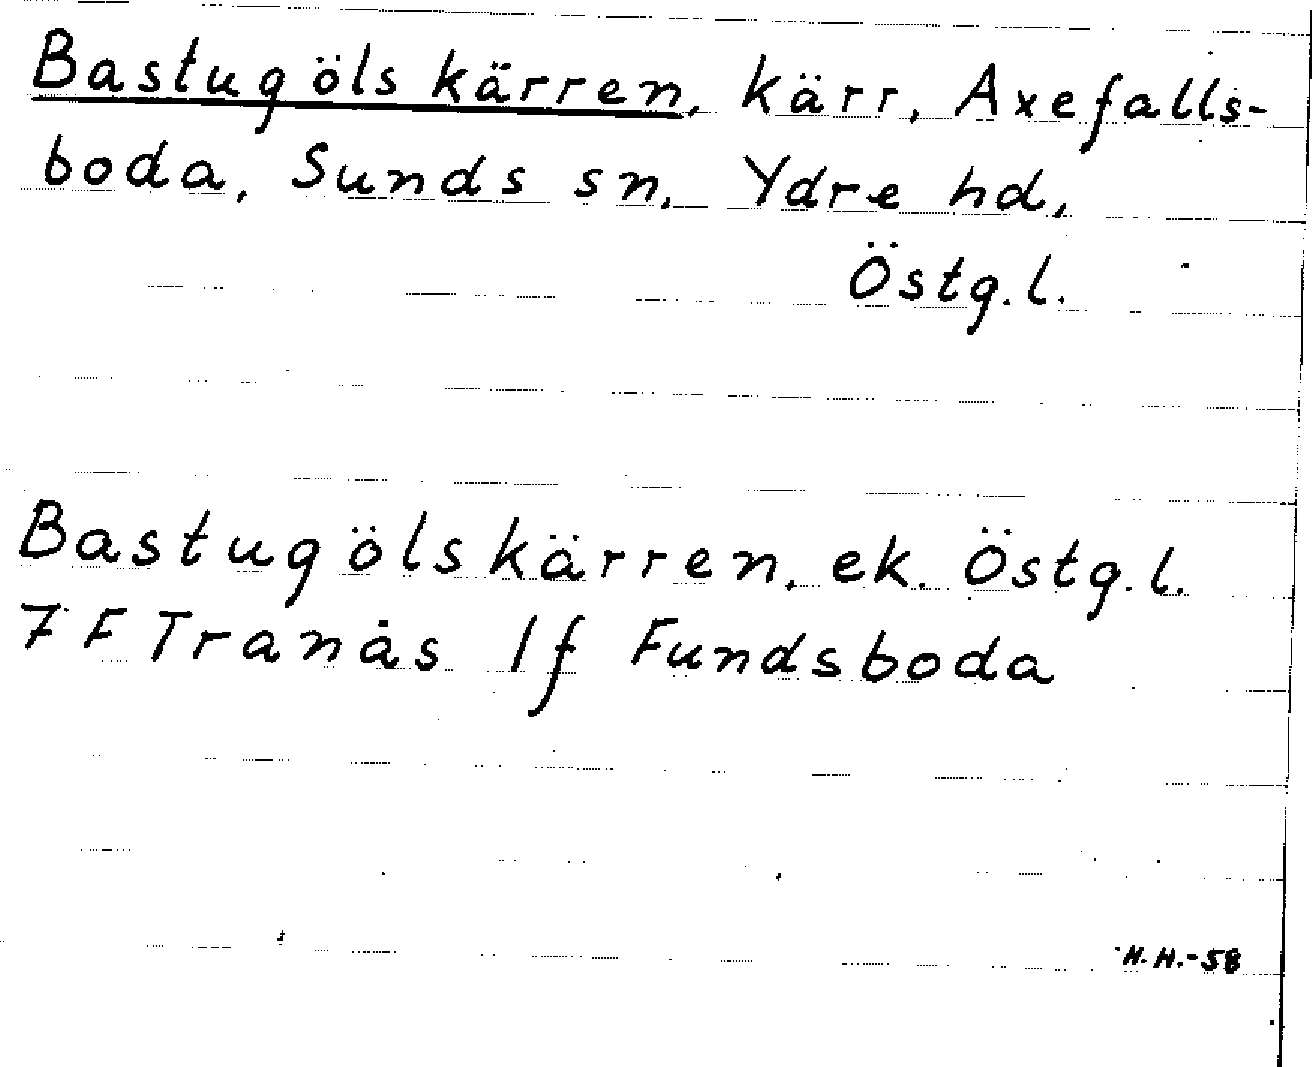 Bastugölskärren, kärr, Axefalls-
boda, Sunds sn, Ydre hd,
Östg.l.
Bastugölskärren, ek. Östg.l.
7 F Tranås 1f Fundsboda
H.H.-58